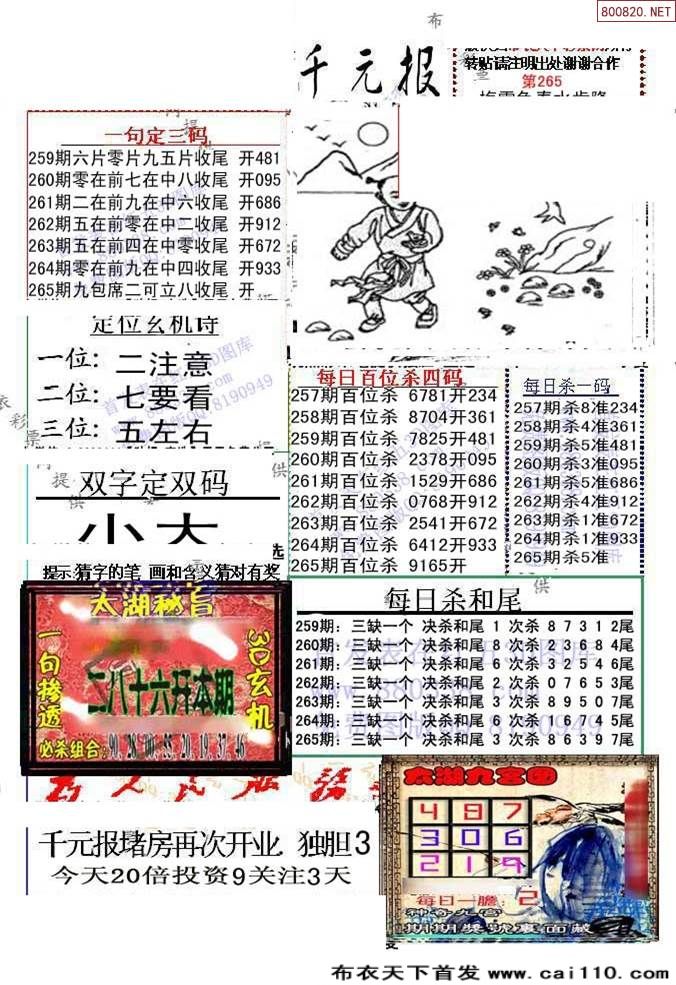 800820.NET
布
千元报
转贴请注明出处谢谢合作
第265
一句定三码
259期六片零片九五片收尾 开481
260期零在前七在中八收尾 开095
261期二在前九在中六收尾 开686
262期五在前零在中二收尾 开912
263期五在前四在中零收尾 开672
264期零在前九在中四收尾 开933
265期九包席二可立八收尾 开
定位玄机诗
一位: 二注意
二位: 七要看
三位: 五左右
双字定双码
小大
提示:猜字的笔 画和含义猜对有奖
每日百位杀四码
257期百位杀 6781开234
258期百位杀 8704开361
259期百位杀 7825开481
260期百位杀 2378开095
261期百位杀 1529开686
262期百位杀 0768开912
263期百位杀 2541开672
264期百位杀 6412开933
265期百位杀 9165开
每日杀一码
257期杀8准234
258期杀4准361
259期杀5准481
260期杀3准095
261期杀5准686
262期杀4准912
263期杀1准672
264期杀1准933
265期杀5准
每日杀和尾
259期: 三缺一个 决杀和尾 1 次杀 8 7 3 1 2尾
260期: 三缺一个 决杀和尾 8 次杀 2 3 6 8 4尾
261期: 三缺一个 决杀和尾 6 次杀 3 2 5 4 6尾
262期: 三缺一个 决杀和尾 2 次杀 0 7 6 5 3尾
263期: 三缺一个 决杀和尾 3 次杀 8 9 5 0 7尾
264期: 三缺一个 决杀和尾 1 次杀 6 1 7 4 5尾
265期: 三缺一个 决杀和尾 3 次杀 8 6 3 9 7尾
太湖秘旨
一句掺透
3D玄机
二八十六开本期
必杀组合:90.28.00.55.20.19.37.46
太湖九宫图
4 8 7
3 0 6
2 1 9
每日一膽: 2
期期獎號裏面藏
千元报堵房再次开业 独胆3
今天20倍投资9关注3天
布衣天下首发 www.cai110.com